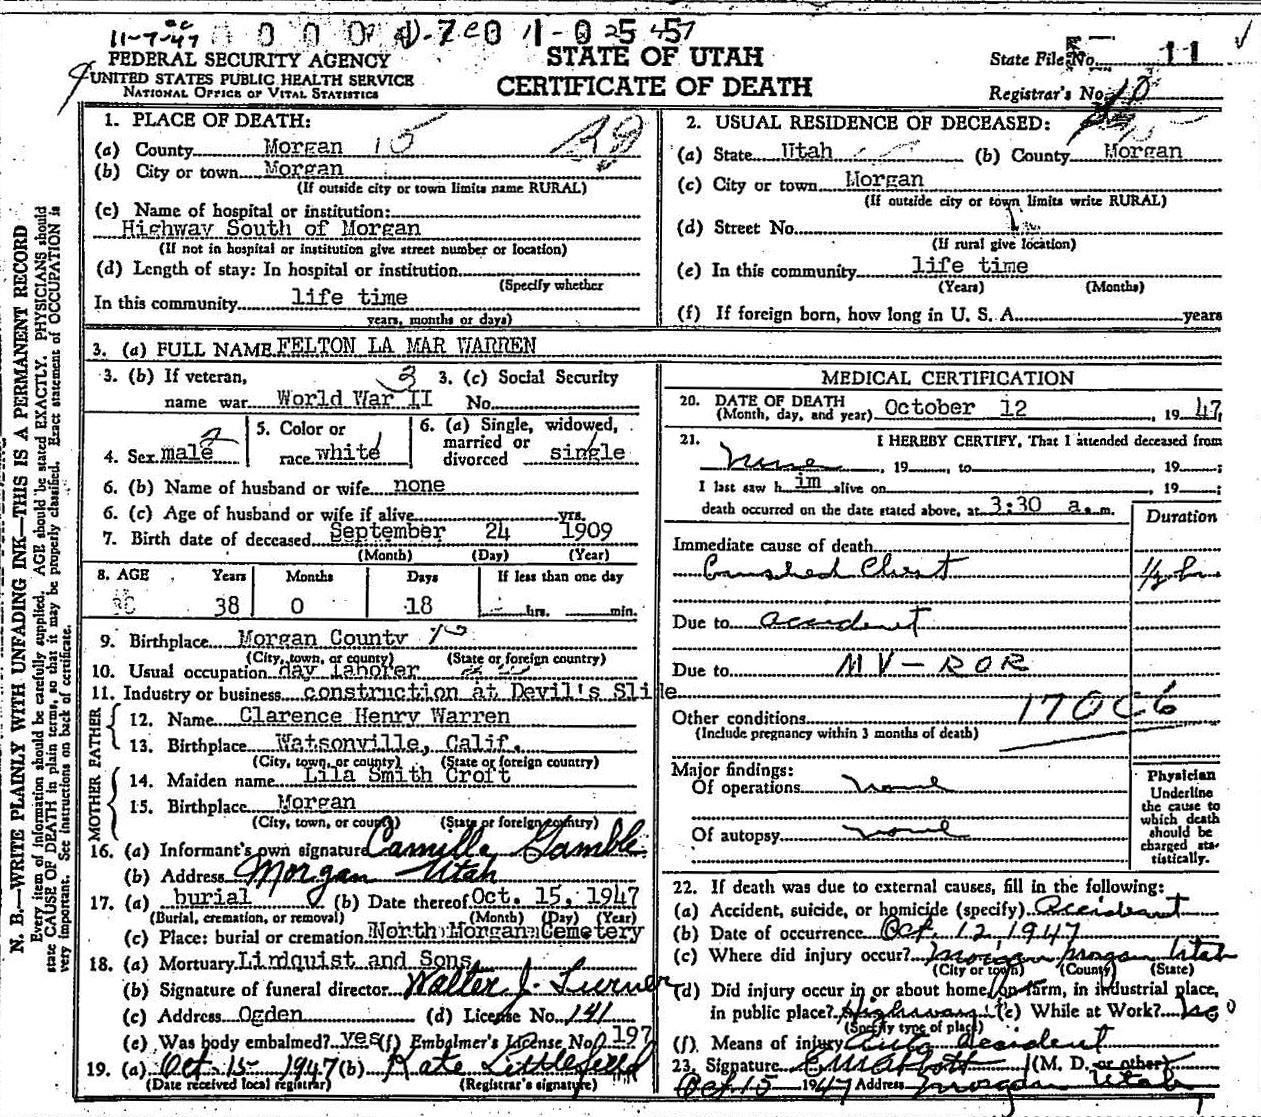 11-7-47
FEDERAL SECURITY AGENCY
UNITED STATES PUBLIC HEALTH SERVICE
NATIONAL OFFICE OF VITAL STATISTICS
STATE OF UTAH
CERTIFICATE OF DEATH
State File No. 11
Registrar's No. 18
N. B.—WRITE PLAINLY WITH UNFADING INK—THIS IS A PERMANENT RECORD
Every item of information should be carefully supplied. AGE should be stated EXACTLY. PHYSICIANS should
state CAUSE OF DEATH in plain terms, so that it may be properly classified. Exact statement of OCCUPATION is
very important. See instructions on back of certificate.
1. PLACE OF DEATH:
(a) County Morgan 15
(b) City or town Morgan
(If outside city or town limits name RURAL)
(c) Name of hospital or institution:
Highway South of Morgan
(If not in hospital or institution give street number or location)
(d) Length of stay: In hospital or institution
(Specify whether
In this community life time
years, months or days)
2. USUAL RESIDENCE OF DECEASED:
(a) State Utah (b) County Morgan
(c) City or town Morgan
(If outside city or town limits write RURAL)
(d) Street No.
(If rural give location)
(e) In this community life time
(Years) (Months)
(f) If foreign born, how long in U. S. A. years
3. (a) FULL NAME FELTON LA MAR WARREN
3. (b) If veteran,
name war World War II
3. (c) Social Security
No.
4. Sex male
5. Color or
race white
6. (a) Single, widowed,
married or
divorced single
6. (b) Name of husband or wife none
6. (c) Age of husband or wife if alive yrs.
7. Birth date of deceased September 24 1909
(Month) (Day) (Year)
8. AGE Years Months Days If less than one day
38 0 18 hrs. min.
9. Birthplace Morgan County
(City, town, or county) (State or foreign country)
10. Usual occupation day laborer
11. Industry or business construction at Devil's Slide
FATHER
12. Name Clarence Henry Warren
13. Birthplace Watsonville, Calif.
(City, town, or county) (State or foreign country)
MOTHER
14. Maiden name Lila Smith Croft
15. Birthplace Morgan
(City, town, or county) (State or foreign country)
16. (a) Informant's own signature Camilla Gamble
(b) Address Morgan Utah
17. (a) burial (b) Date thereof Oct. 15, 1947
(Burial, cremation, or removal) (Month) (Day) (Year)
(c) Place: burial or cremation North Morgan Cemetery
18. (a) Mortuary Lindquist and Sons
(b) Signature of funeral director Walter J. Turner
(c) Address Ogden (d) License No. 141
(e) Was body embalmed? yes (f) Embalmer's License No. 197
19. (a) Oct-15-1947 (b) Kate Littlefield
(Date received local registrar) (Registrar's signature)
MEDICAL CERTIFICATION
20. DATE OF DEATH
(Month, day, and year) October 12, 1947
21. I HEREBY CERTIFY, That I attended deceased from
none, 19, to, 19;
I last saw him alive on, 19;
death occurred on the date stated above, at 3:30 a.m.
Duration
Immediate cause of death
Crushed Chest 1/2 hr
Due to accident
Due to MV-ROR
170C6
Other conditions
(Include pregnancy within 3 months of death)
Major findings:
Of operations none
Of autopsy none
Physician
Underline
the cause to
which death
should be
charged sta-
tistically.
22. If death was due to external causes, fill in the following:
(a) Accident, suicide, or homicide (specify) Accident
(b) Date of occurrence Oct. 12, 1947
(c) Where did injury occur? Morgan Morgan Utah
(City or town) (County) (State)
(d) Did injury occur in or about home, on farm, in industrial place,
in public place? Highway (e) While at Work? No
(Specify type of place)
(f). Means of injury Auto accident
23. Signature (M. D. or other)
Oct 15 1947 Address Morgan Utah